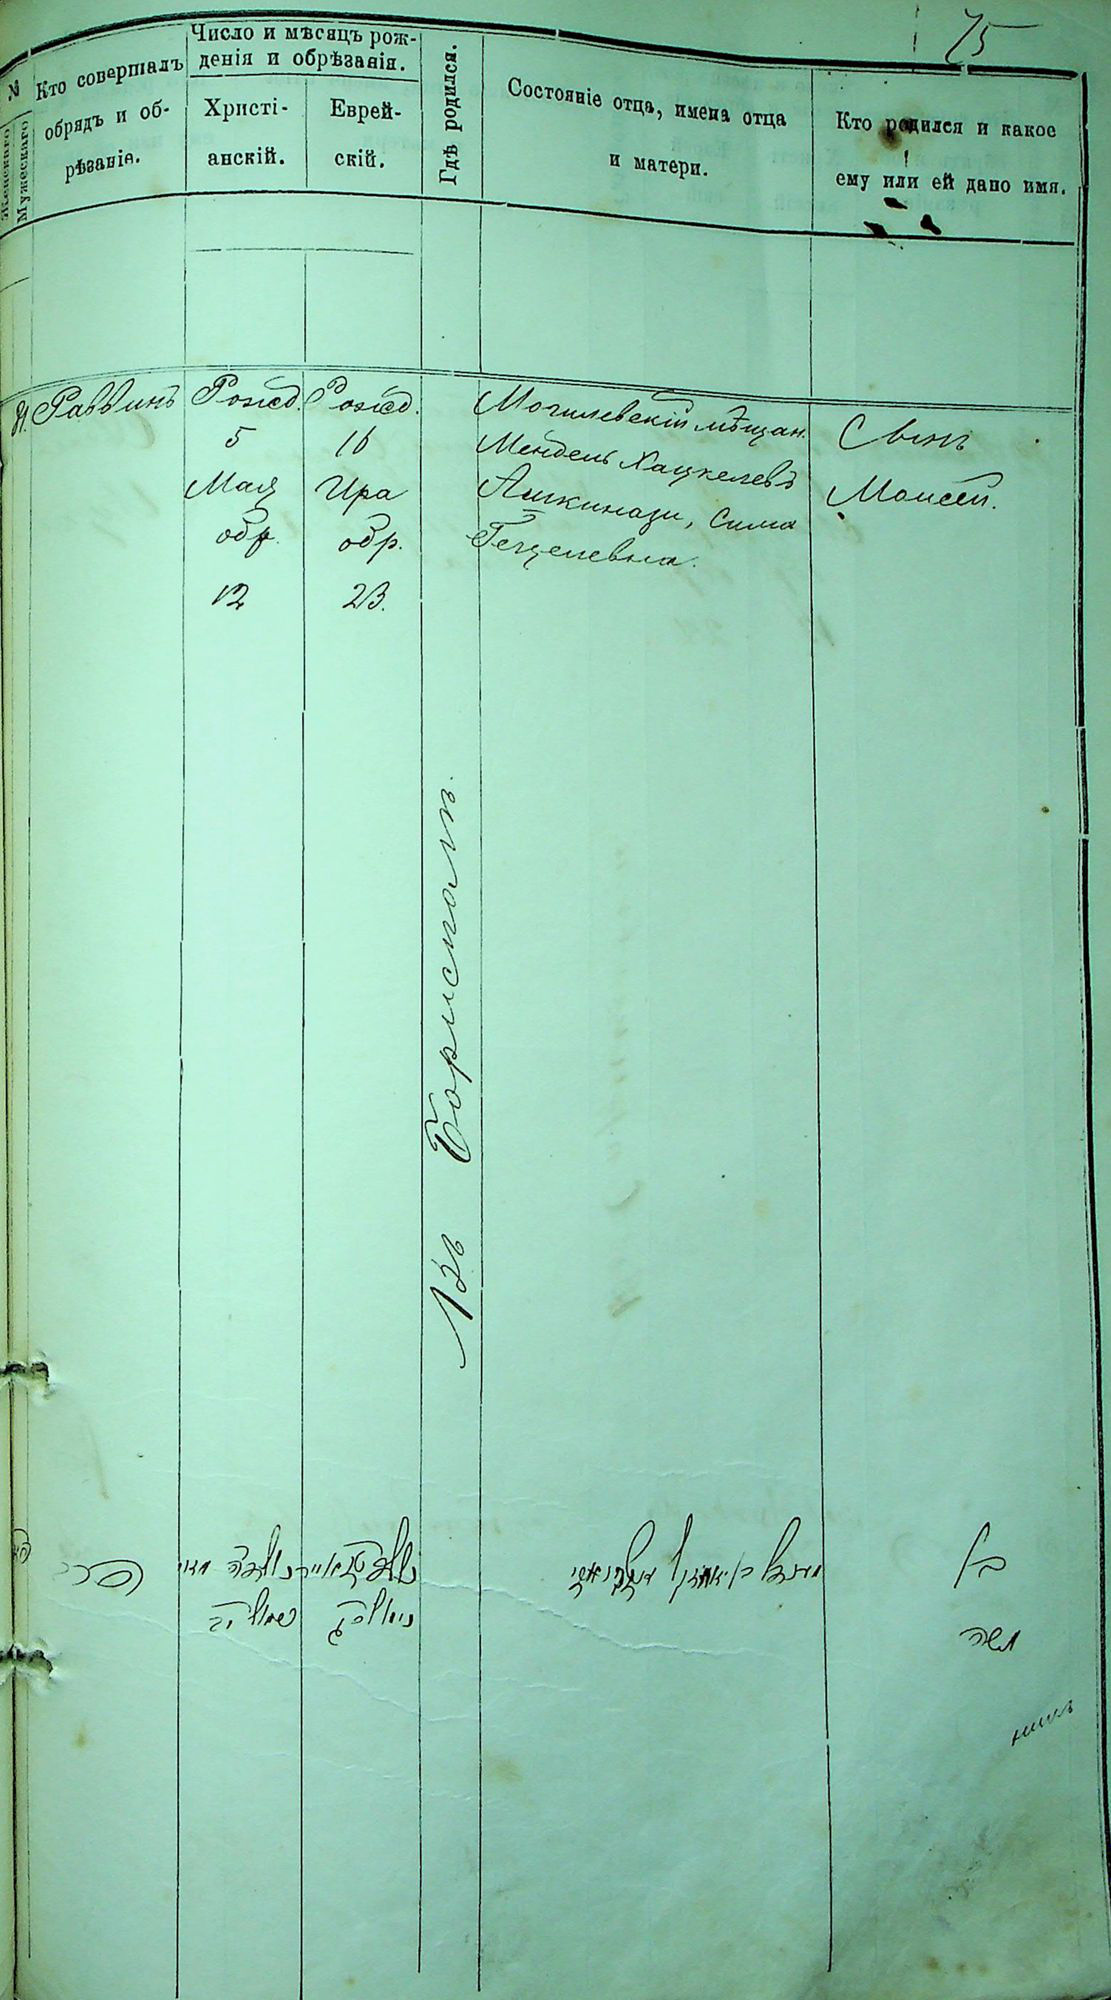 75
№
Женскаго
Мужескаго
Кто совершалъ
обрядъ и об-
рѣзаніе.
Число и мѣсяцъ рож-
денія и обрѣзанія.
Христі-
анскій.
Еврей-
скій.
Гдѣ родился.
Состояніе отца, имена отца
и матери.
Кто родился и какое
ему или ей дано имя.
Раввинъ
Рожд.
5
Мая
обр.
12
Рожд.
16
Ира
обр.
23.
Въ Борисполѣ.
Могилевскій мѣщан.
Мендель Хацкелевъ
Ашкинази, Сима
Гецелевна.
Сынъ
Моисей.
בן
משה